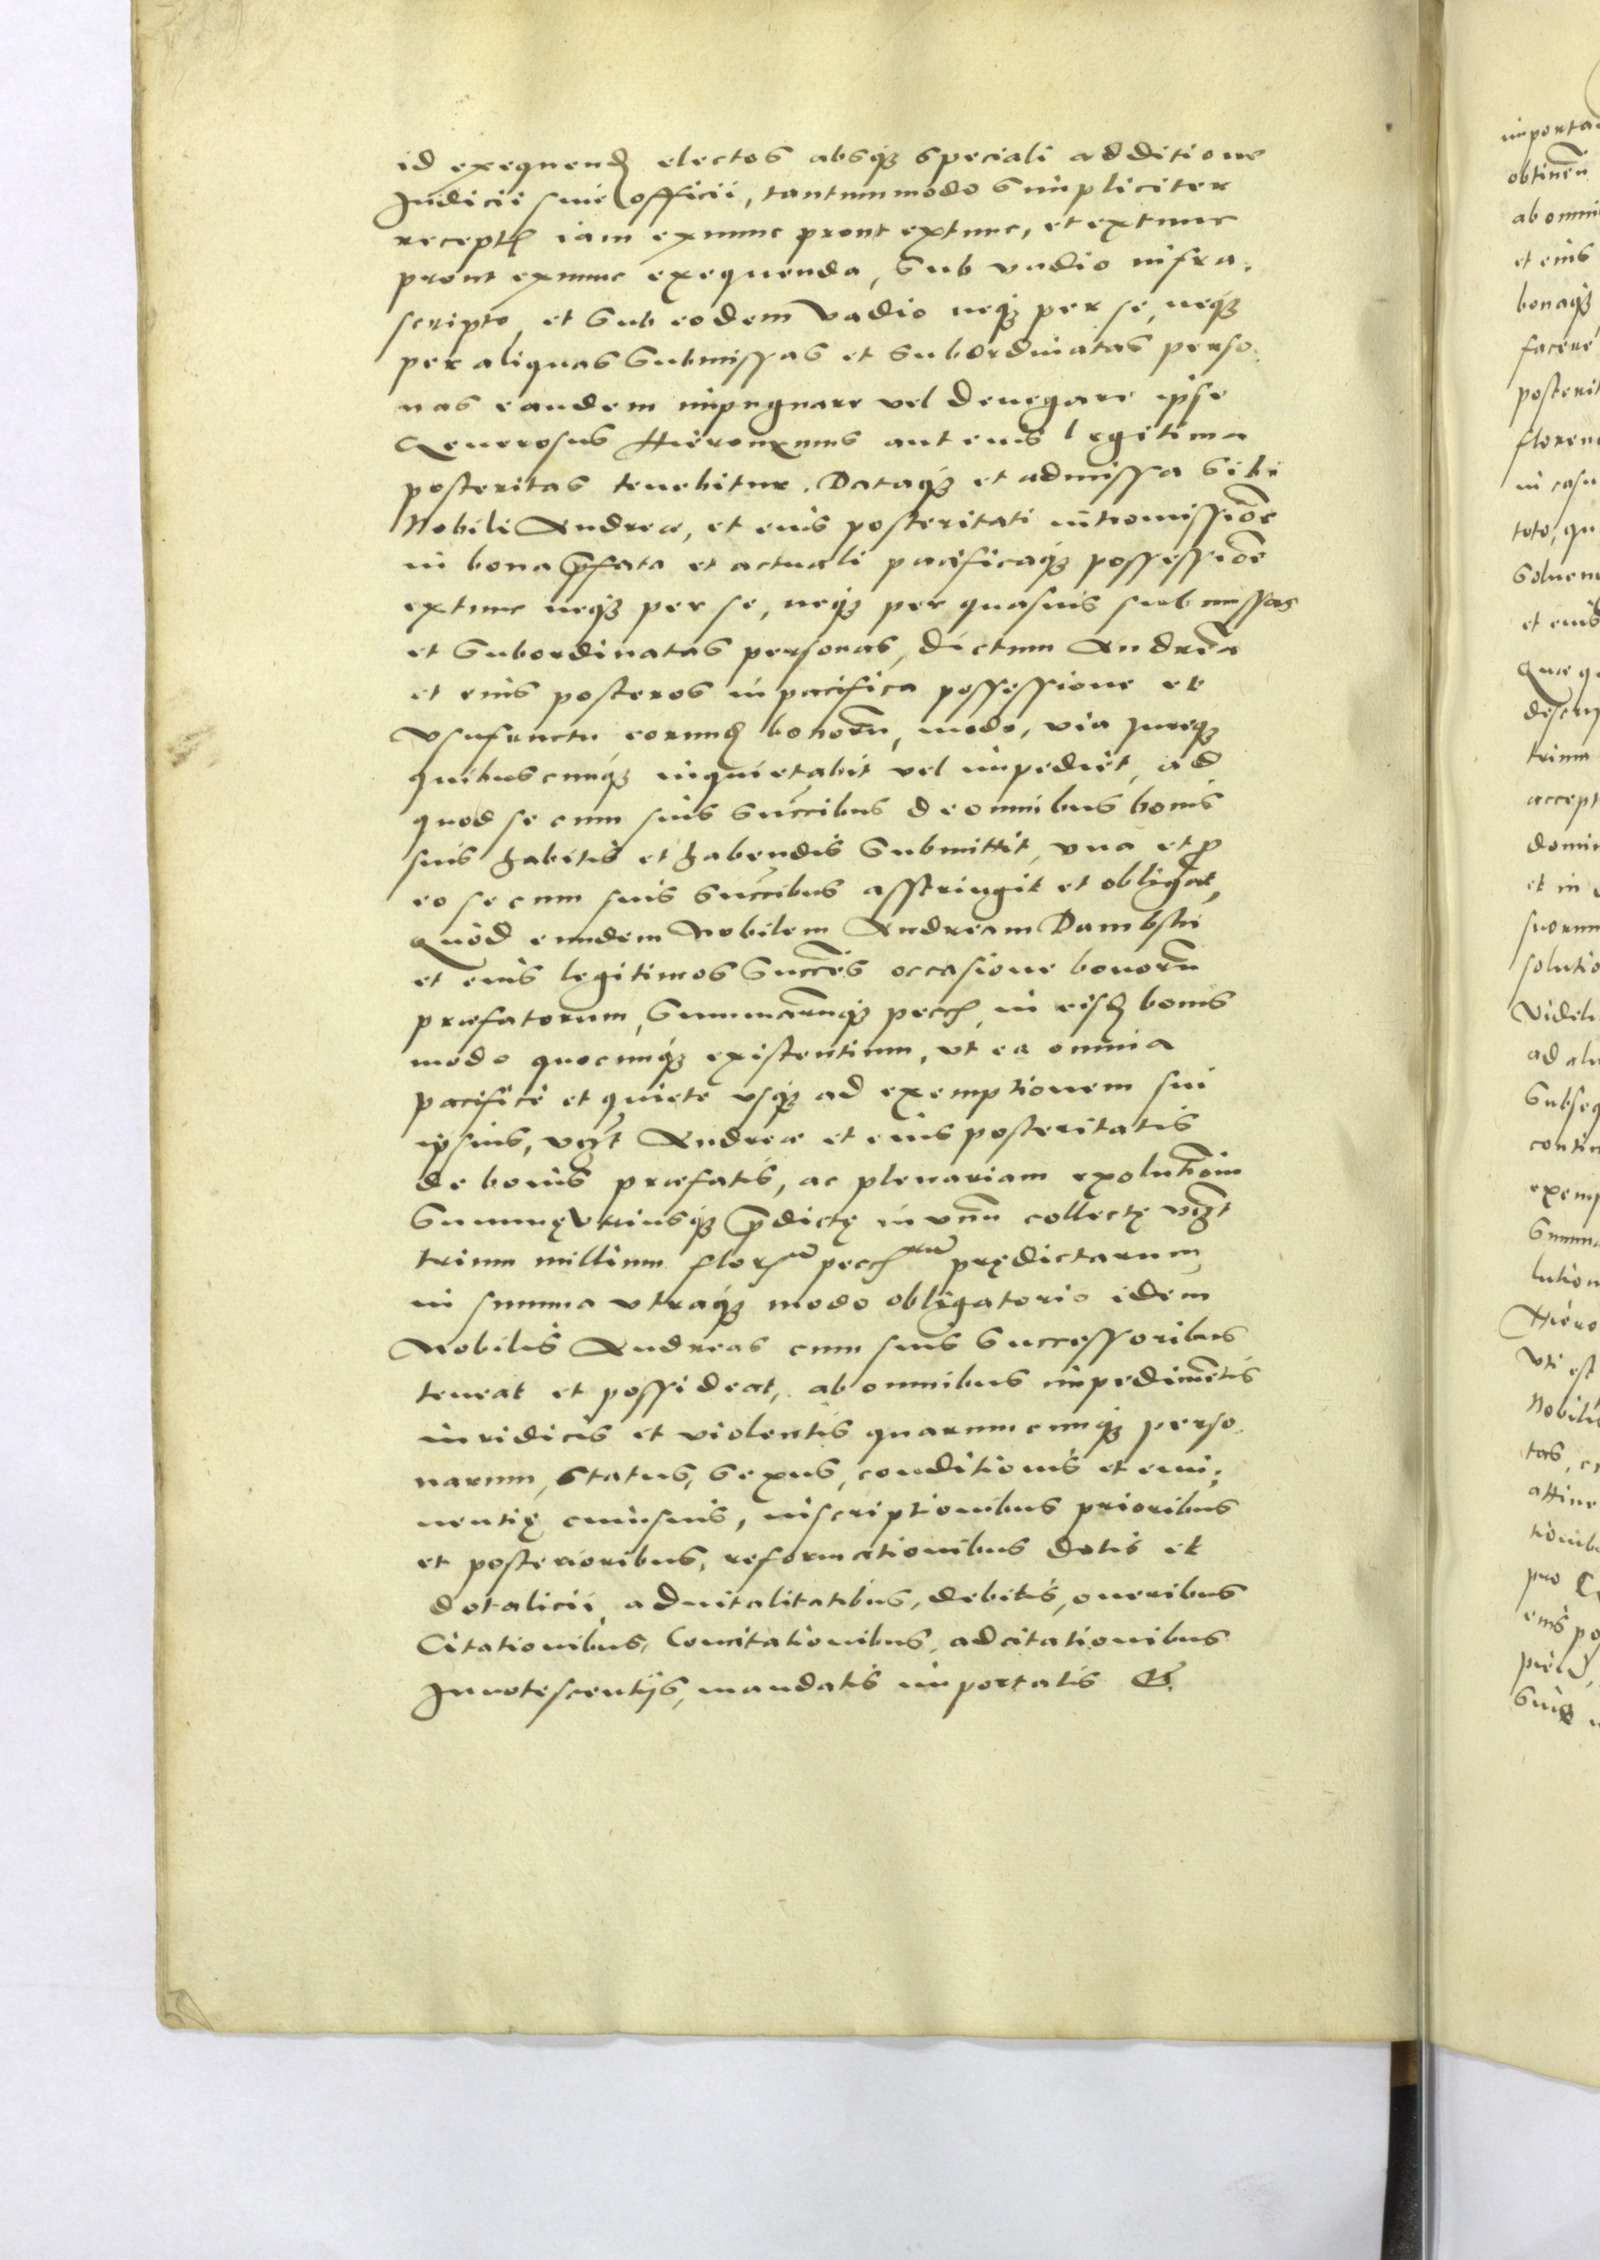 id exequend electos absq speciali additione
Judicii sive officii, tantummodo simpliciter
recept iam exnunc prout extunc, et extunc
prout exnunc exequenda, sub vadio infra-
scripto, et sub eodem vadio neq per se, neq
per aliquas submissas et subordinatas perso-
nas eandem impugnare vel denegare ipse
Generosus Hieronymus aut eius legitima
posteritas tenebitur. Dataq et admissa sibi
Nobili Andreæ, et eius posteritati intromissiõe
in bona p̃fata et actuali pacificaq possessiõe
extunc neq per se, neq per quasuis submissas
et subordinatas personas, dictum Andreã
et eius posteros in pacifica possessione et
Vsufructu eorund bonorũ, modo, via Jureq
quibuscunq inquietabit vel impediet, ad
quod se cum suis succibus de omnibus bonis
suis habitis et habendis submittit, vna et p
eo se cum suis succibus asstringit et obligat,
Quod eundem Nobilem Andream Dambski
et eius legitimos succes occasione bonorũ
præfatorum, summarumq pecc in eisd bonis
modo quocunq existentium, vt ea omnia
pacifice et quiete vsq ad exemptionem sui
ipsius, vczt Andreæ et eius posteritatis
de bonis præfatis, ac plenariam exolutiõm
Summę vtriusq p̃dictę in vnũ collectę vczt
trium millium flor pecc prędictarum
in summa vtraq modo obligatorio idem
Nobilis Andreas cum suis successoribus
teneat et possideat, ab omnibus impedimẽtis
iuridicis et violentis quarumcunq perso-
narum, status, sexus, conditionis et emi-
nentię cuiusuis, inscriptionibus prioribus
et posterioribus, reformationibus dotis et
dotalicii, aduitalitatibus, debitis, oneribus
Citationibus, Concitationibus, adcitationibus
Innotescentijs, mandatis importatis &
importa
obtinen
ab omni
et eius
bonaq
facere
posterit
floren
in casu
toto, qu
soluen
et eius
Quæ q
descrip
trium
accept
domin
et in
suorum
solutio
Videli
ad al
subseq
contin
exemp
summ
lution
Hiero
vti est
Nobili
tas, c
attine
tionib
pro C
eius po
suis